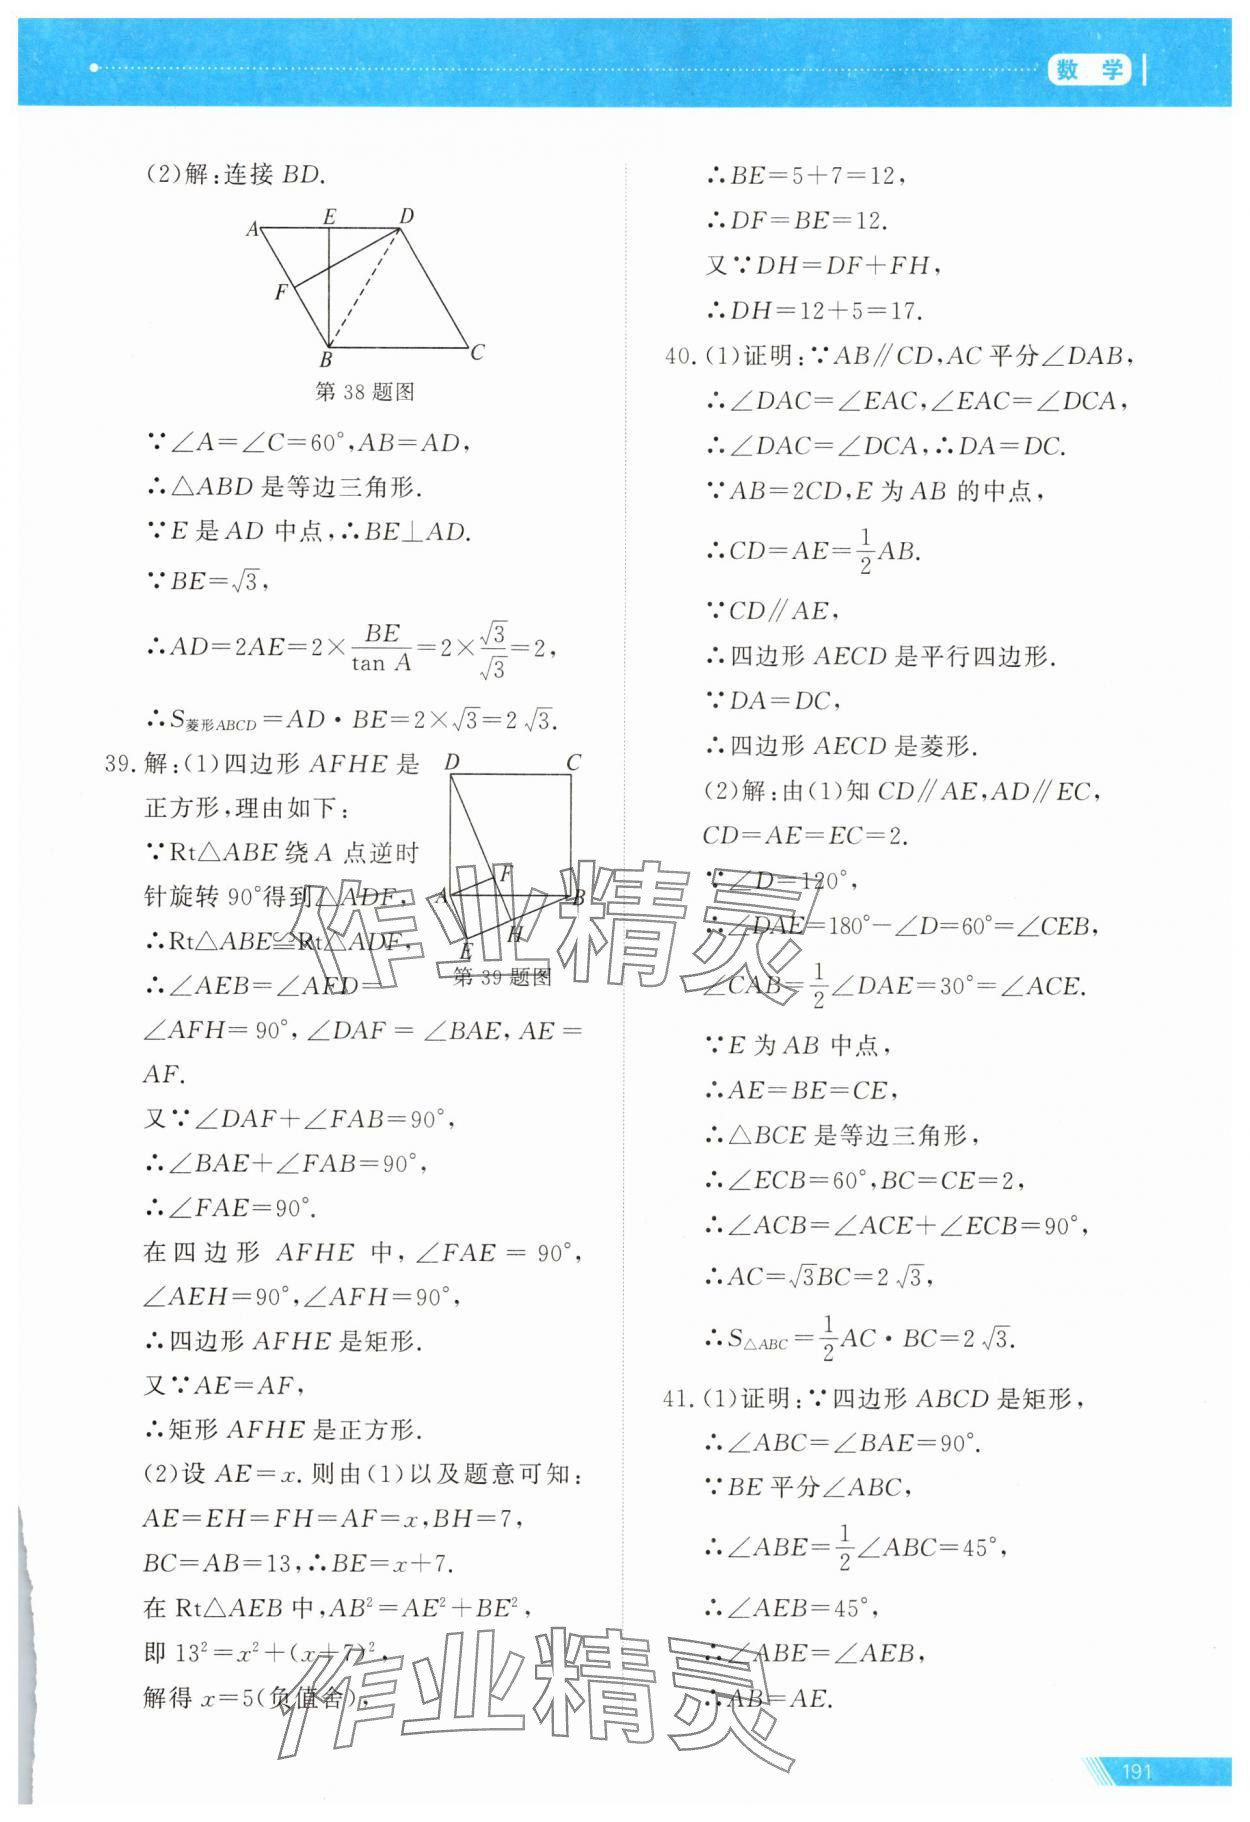 数 学
(2)解:连接 BD.
A E D
F
B C
第 38 题图
∵∠A=∠C=60°,AB=AD,
∴△ABD 是等边三角形.
∵E 是 AD 中点,∴BE⊥AD.
∵BE=√3,
∴AD=2AE=2×BE/tan A=2×√3/√3=2,
∴S菱形ABCD=AD·BE=2×√3=2√3.
39.解:(1)四边形 AFHE 是
正方形,理由如下:
∵Rt△ABE 绕 A 点逆时
针旋转 90°得到△ADF,
∴Rt△ABE≌Rt△ADF,
∴∠AEB=∠AFD=
D C
F
A B
H
E
第 39 题图
∠AFH=90°,∠DAF=∠BAE,AE=
AF.
又∵∠DAF+∠FAB=90°,
∴∠BAE+∠FAB=90°,
∴∠FAE=90°.
在四边形 AFHE 中,∠FAE=90°,
∠AEH=90°,∠AFH=90°,
∴四边形 AFHE 是矩形.
又∵AE=AF,
∴矩形 AFHE 是正方形.
(2)设 AE=x.则由(1)以及题意可知:
AE=EH=FH=AF=x,BH=7,
BC=AB=13,∴BE=x+7.
在 Rt△AEB 中,AB²=AE²+BE²,
即 13²=x²+(x+7)²,
解得 x=5(负值舍),
∴BE=5+7=12,
∴DF=BE=12.
又∵DH=DF+FH,
∴DH=12+5=17.
40.(1)证明:∵AB∥CD,AC 平分∠DAB,
∴∠DAC=∠EAC,∠EAC=∠DCA,
∴∠DAC=∠DCA,∴DA=DC.
∵AB=2CD,E 为 AB 的中点,
∴CD=AE=1/2AB.
∵CD∥AE,
∴四边形 AECD 是平行四边形.
∵DA=DC,
∴四边形 AECD 是菱形.
(2)解:由(1)知 CD∥AE,AD∥EC,
CD=AE=EC=2.
∵∠D=120°,
∴∠DAE=180°-∠D=60°=∠CEB,
∠CAB=1/2∠DAE=30°=∠ACE.
∵E 为 AB 中点,
∴AE=BE=CE,
∴△BCE 是等边三角形,
∴∠ECB=60°,BC=CE=2,
∴∠ACB=∠ACE+∠ECB=90°,
∴AC=√3BC=2√3,
∴S△ABC=1/2AC·BC=2√3.
41.(1)证明:∵四边形 ABCD 是矩形,
∴∠ABC=∠BAE=90°.
∵BE 平分∠ABC,
∴∠ABE=1/2∠ABC=45°,
∴∠AEB=45°,
∴∠ABE=∠AEB,
∴AB=AE.
作业精灵
作业精灵
191